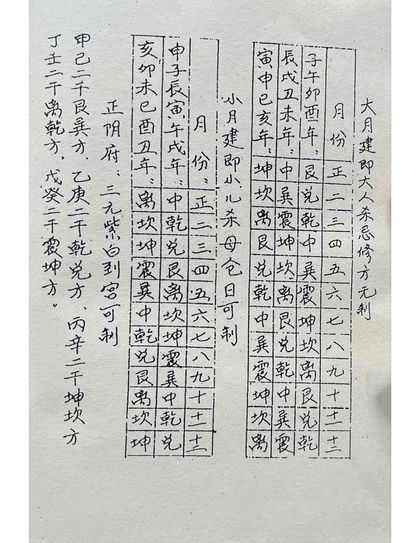 大月建即大人杀忌修方无制
月份正二三四五六七八九十十一十二
子午卯酉年：艮兑乾中巽震坤坎离艮兑乾
辰戌丑未年：中巽震坤坎离艮兑乾中巽震
寅申巳亥年：坤坎离艮兑乾中巽震坤坎离
小月建即小儿杀母仓日可制
月份：正二三四五六七八九十十一十二
申子辰寅午戌年：中乾兑艮离坎坤震巽中乾兑
亥卯未巳酉丑年：离坎坤震巽中乾兑艮离坎坤
正阴府：三元紫白到宫可制
甲己二干艮巽方、乙庚二干乾兑方、丙辛二干坤坎方
丁壬二干离乾方、戊癸二干震坤方。